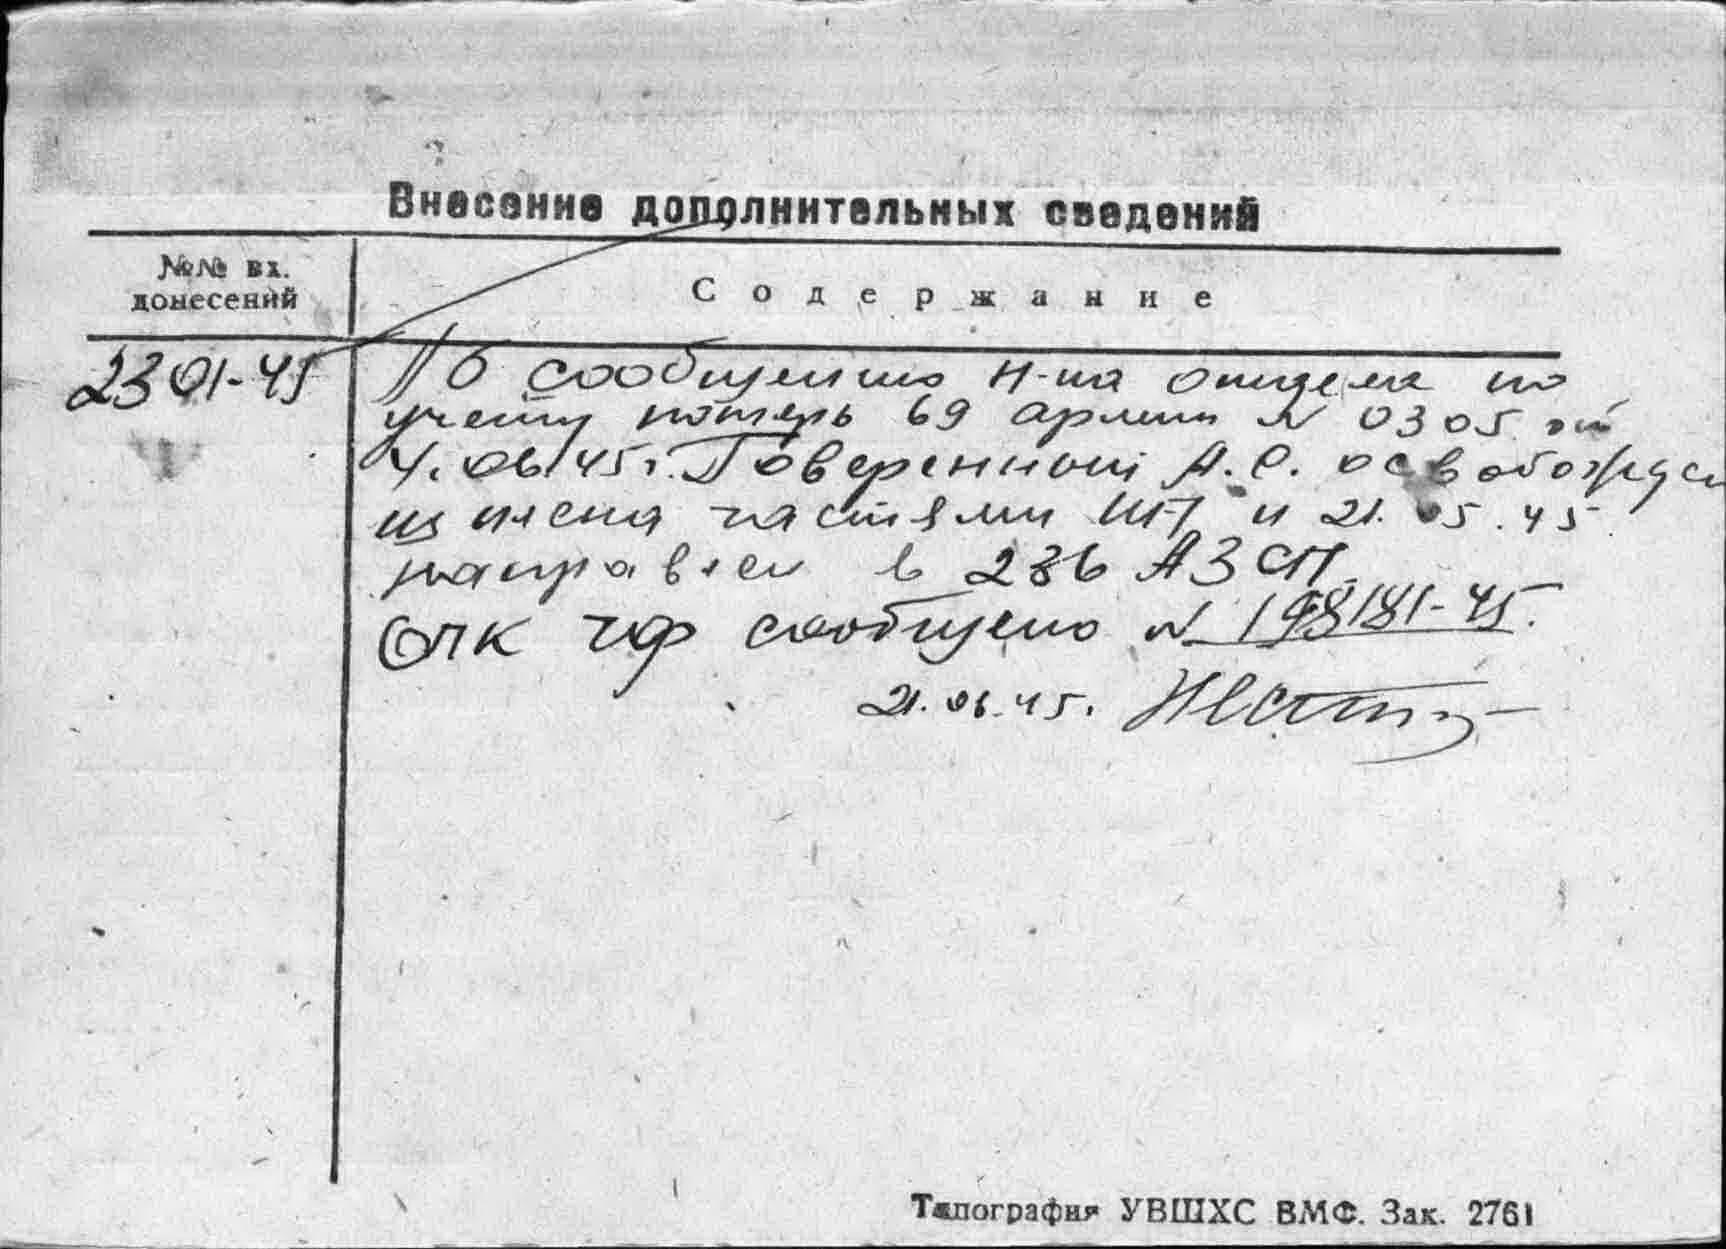 Внесение дополнительных сведений
№№ вх.
донесений
Содержание
2301-45
По сообщению Н-ка отдела по
учету потерь 69 армии N 0305 от
4.06.45г. Говеренный А.С. освобожден
из плена частями и 21.05.45
направлен в 236 АЗСП.
ОПК ЧФ сообщено N 198181-45.
21.06.45.
Типография УВШХС ВМФ. Зак. 2761